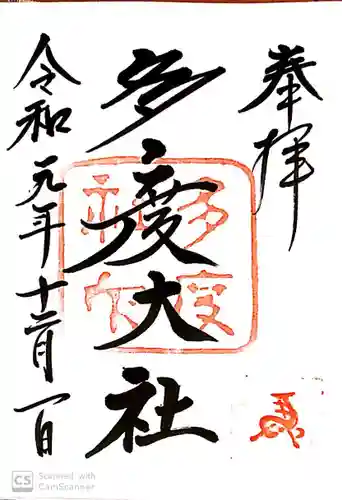 奉拝
多度大社
令和元年十二月一日
多度
神社
CS
Scanned with
CamScanner